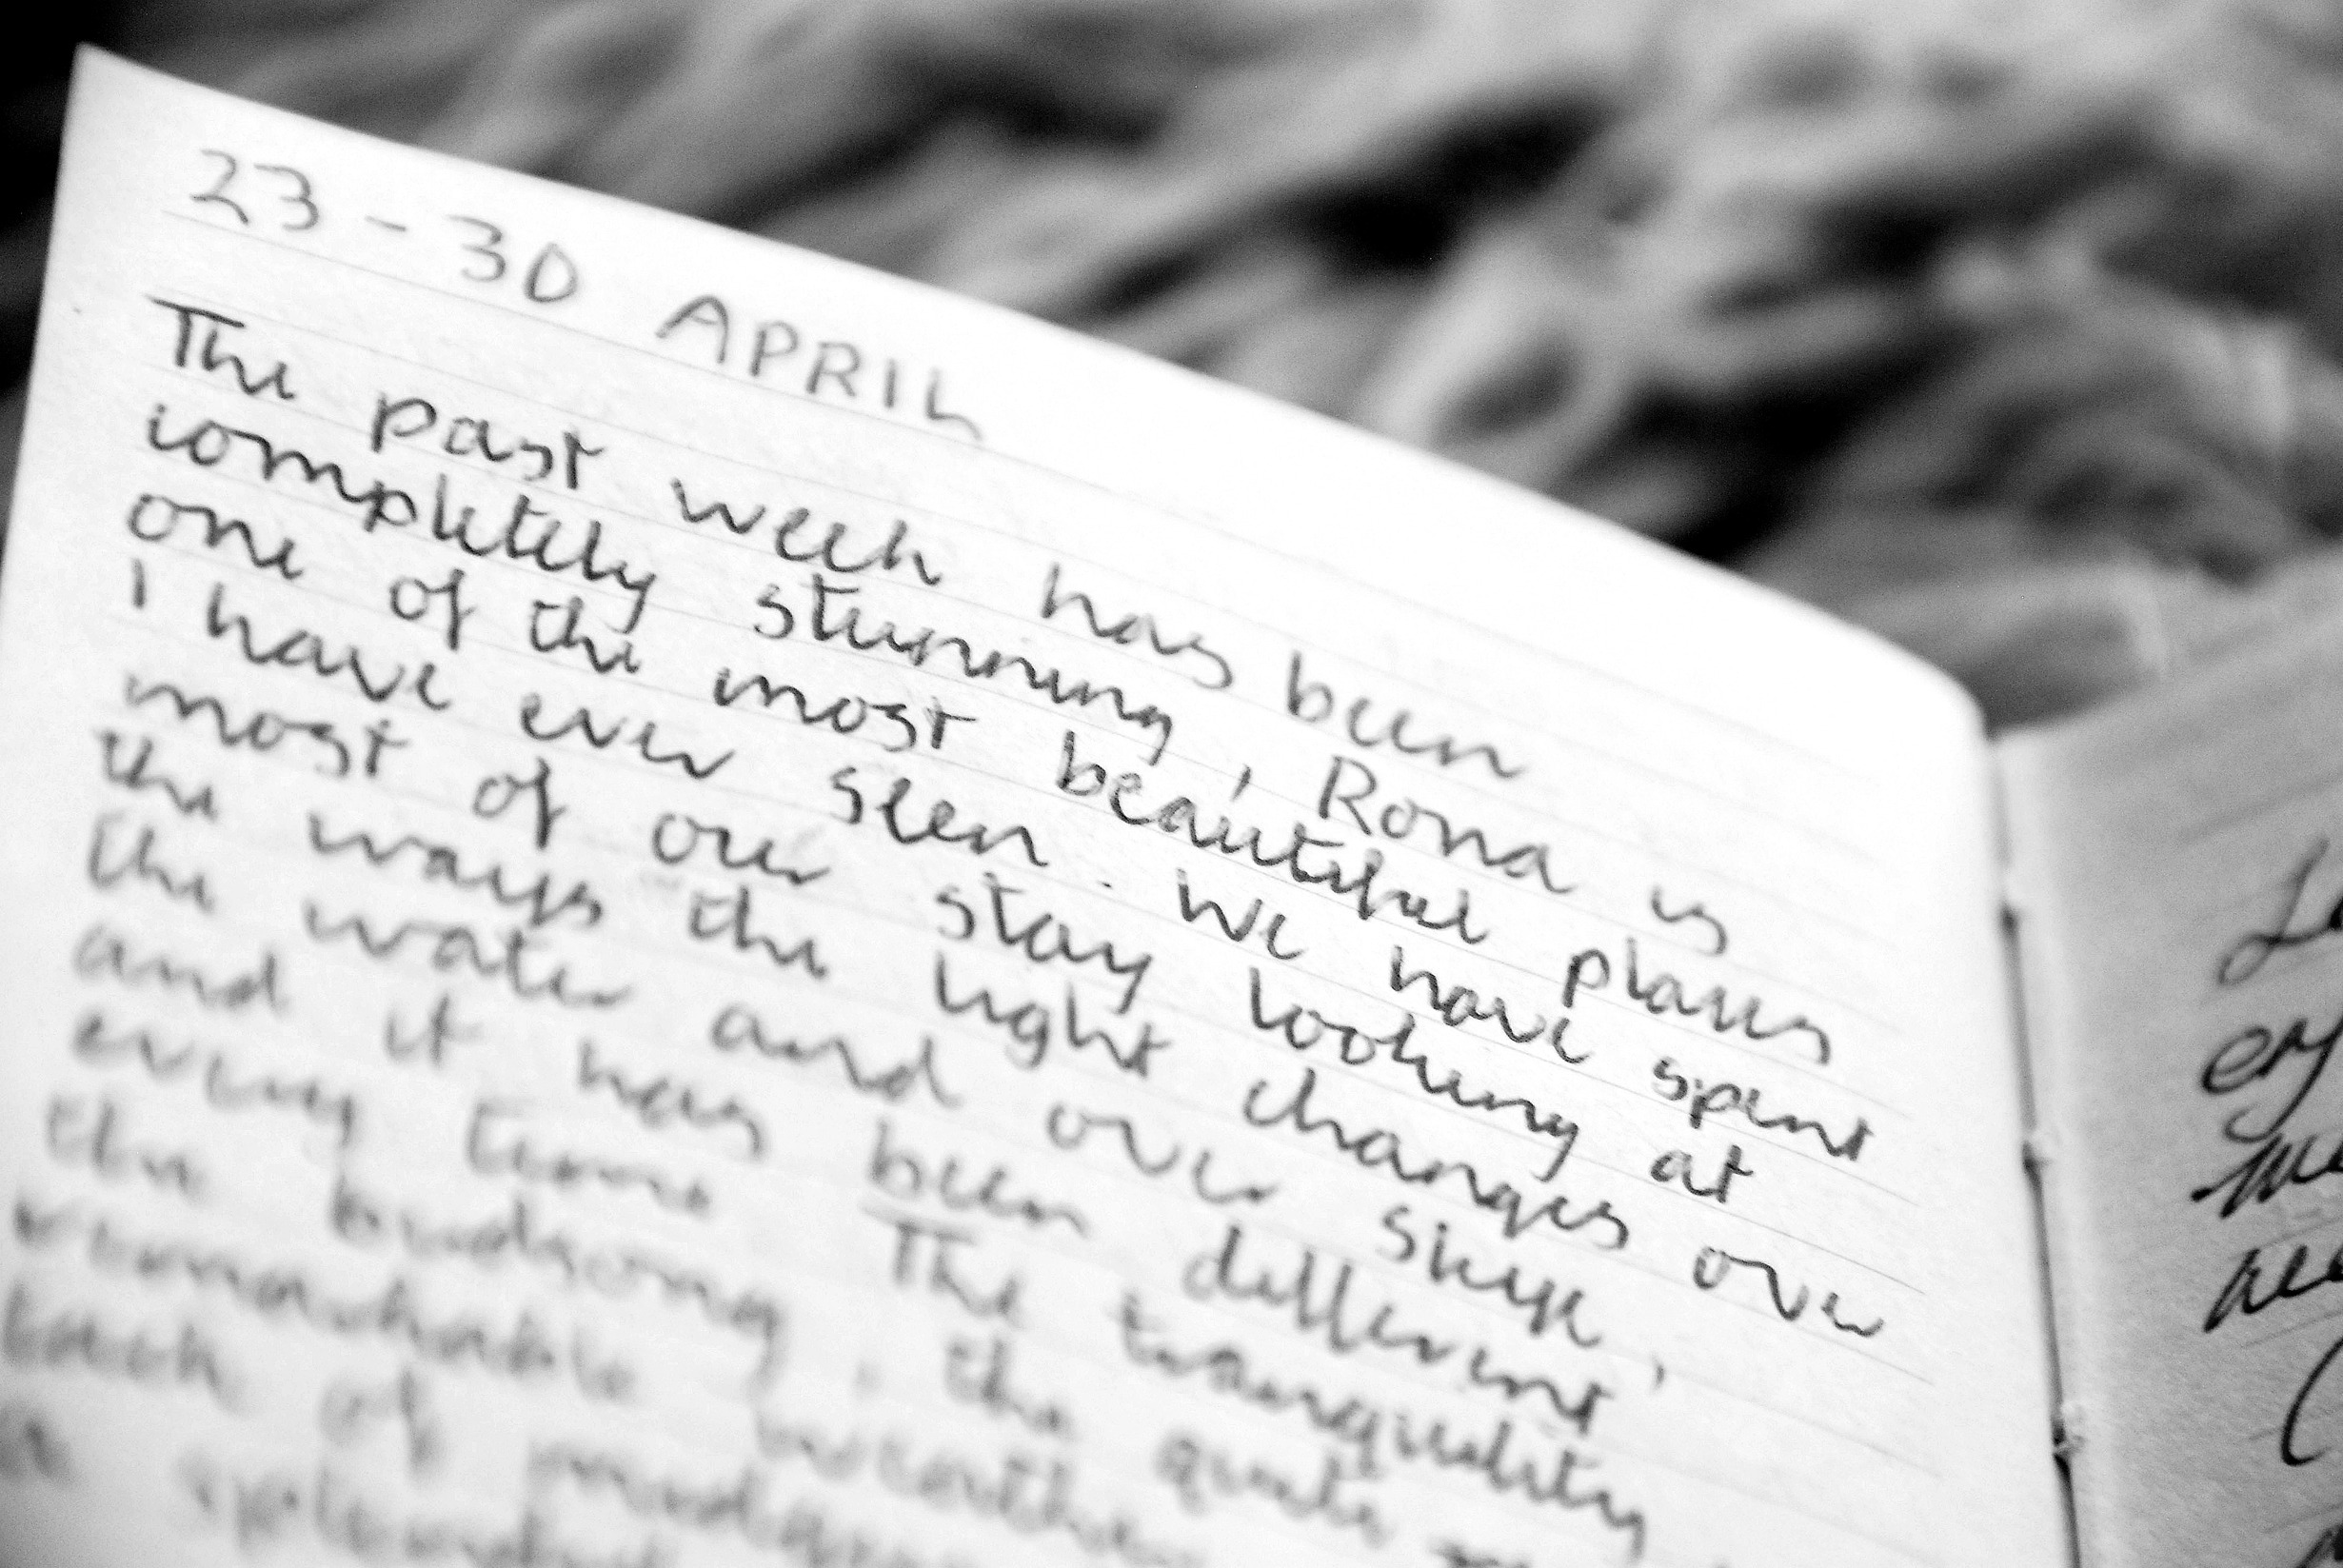 23 - 30 APRIL
The past week has been
completely stunning, Rona is
one of the most beautiful places
I have ever seen. We have spent
most of our stay looking at
the ways the light changes over
the water and over Skye,
and it has been different
every time. The tranquility
the birdsong, the quite
remarkable weather
lack of midges
a splendid